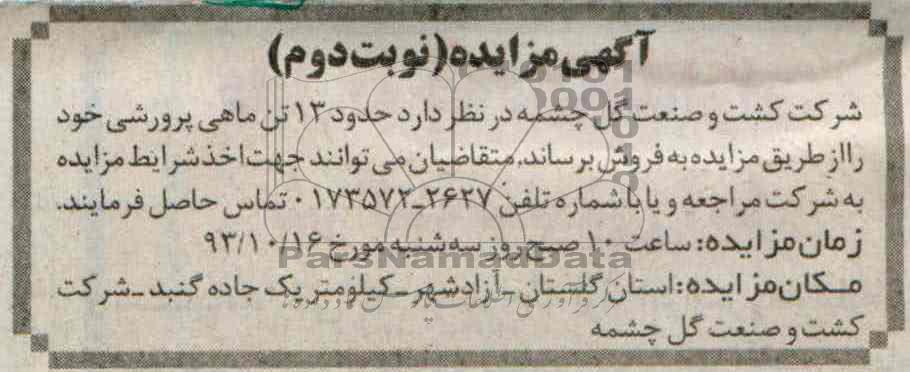 آگهی مزایده (نوبت دوم)
شرکت کشت و صنعت گل چشمه در نظر دارد حدود ۱۳ تن ماهی پرورشی خود
را از طریق مزایده به فروش برساند، متقاضیان می توانند جهت اخذ شرایط مزایده
به شرکت مراجعه و یا با شماره تلفن ۲۶۲۷-۰۱۷۳۵۷۲ تماس حاصل فرمایند.
زمان مزایده: ساعت ۱۰ صبح روز سه شنبه مورخ ۹۳/۱۰/۱۶
ParsNamadData
مکان مزایده: استان گلستان - آزادشهر - کیلومتر یک جاده گنبد - شرکت
کشت و صنعت گل چشمه